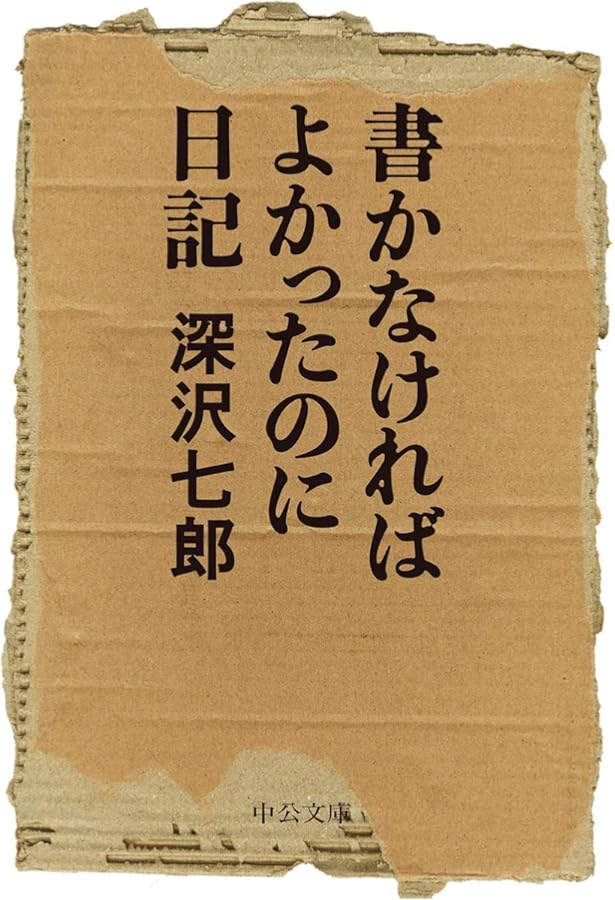 書かなければ
よかったのに
日記
深沢七郎
中公文庫